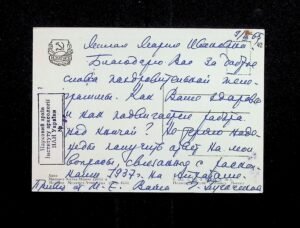 Милая Мария Ивановна
Благодарю Вас за добрые
слова поздравительной теле-
граммы. Как Ваше здоровье
и как подвигается работа
над книгой? Не теряю надеж-
ды получить ответ на мои
вопросы, связанные с раскоп-
ками 1937 г. на
Привет от М. Е. Ваша
Науковий архів
Інституту археології
НАН України
№